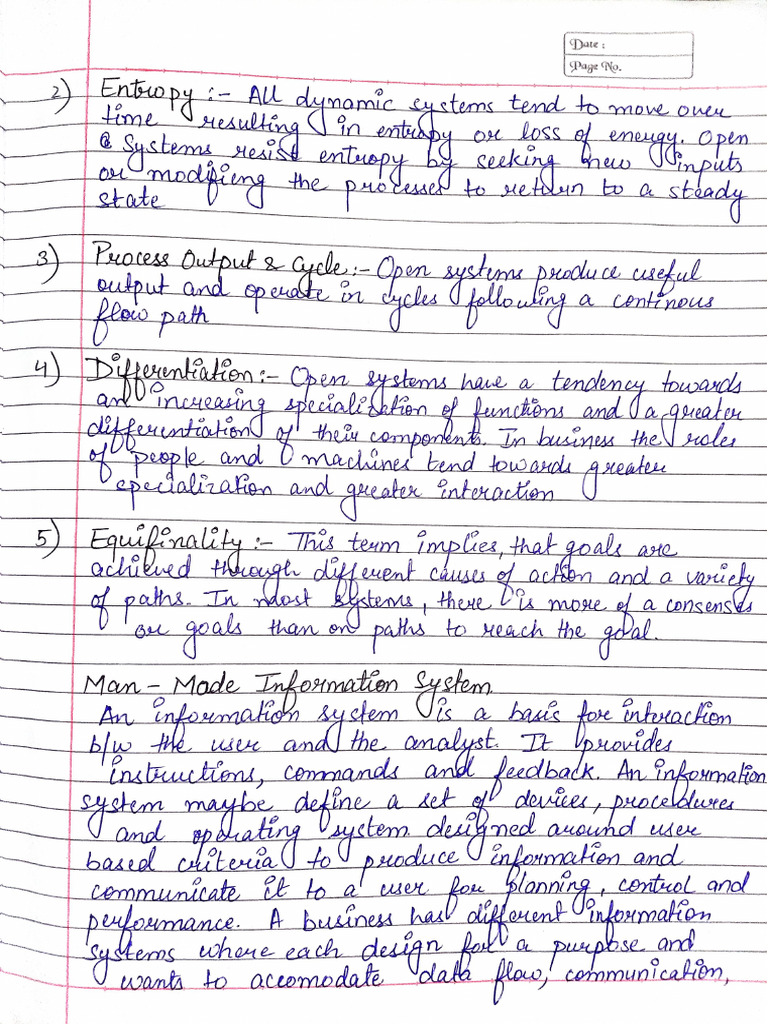 Date :
Page No.
2) Entropy :- All dynamic systems tend to move over
time resulting in entropy or loss of energy. Open
systems resist entropy by seeking new inputs
or modifieng the processes to return to a steady
state
3) Process Output & Cycle :- Open systems produce useful
output and operate in cycles following a continous
flow path
4) Differentiation :- Open systems have a tendency towards
an increasing specialization of functions and a greater
differentiation of their components. In business the roles
of people and machines tend towards greater
specialization and greater interaction
5) Equifinality :- This term implies, that goals are
achieved through different causes of action and a variety
of paths. In most systems, there is more of a consenses
or goals than on paths to reach the goal.
Man - Made Information System
An information system is a basis for interaction
b/w the user and the analyst. It provides
instructions, commands and feedback. An information
system maybe define a set of devices, procedures
and operating system designed around user
based criteria to produce information and
communicate it to a user for planning, control and
performance. A business has different information
systems where each design for a purpose and
wants to accomodate data flow, communication,